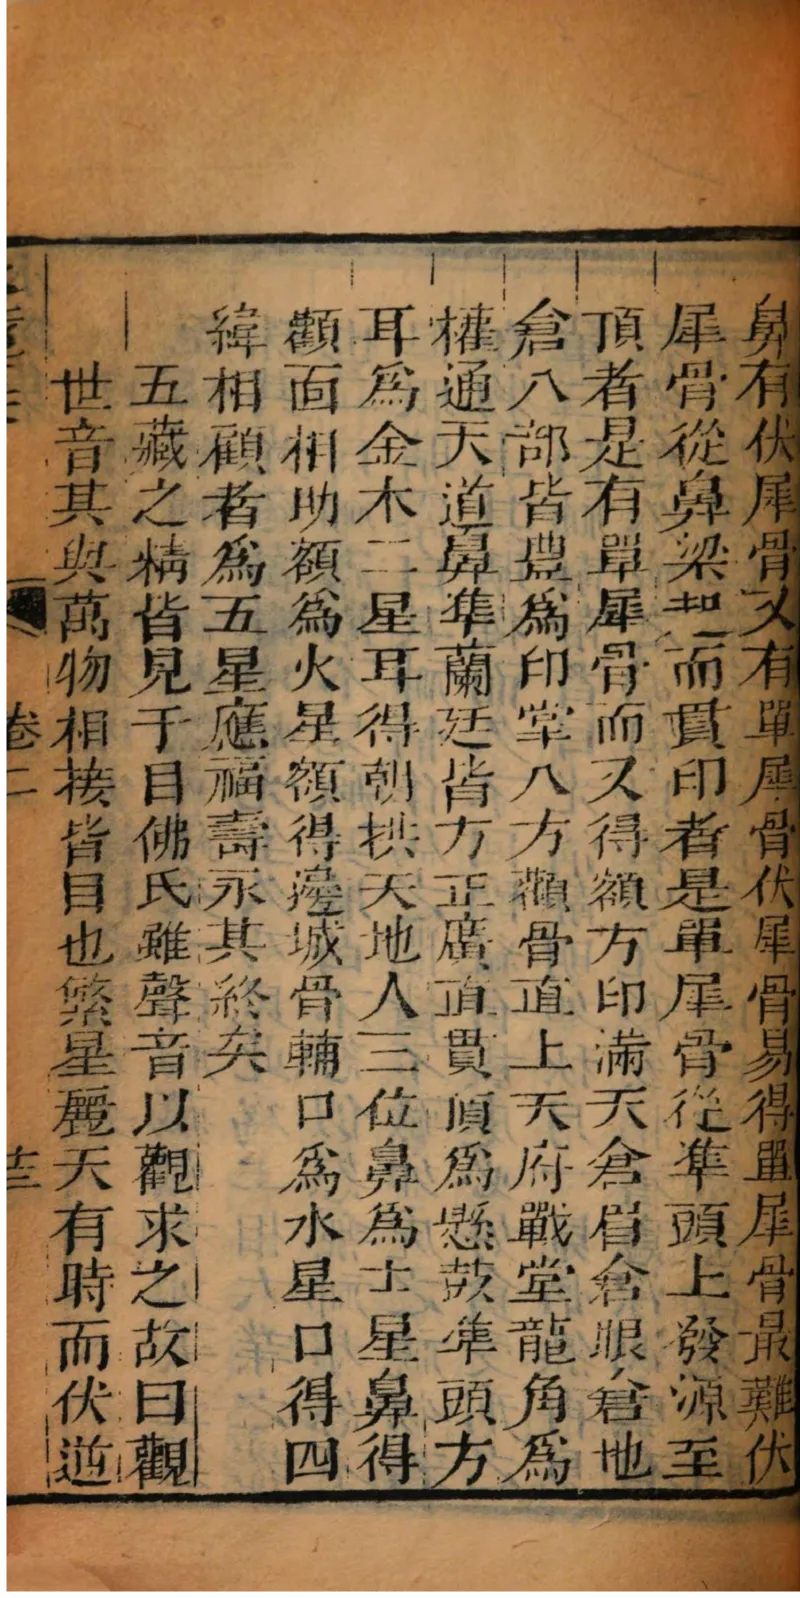 鼻有伏犀骨又有單犀骨伏犀骨易得單犀骨最難伏
犀骨從鼻梁起而貫印者是單犀骨從準頭上發源至
頂者是有單犀骨而又得額方印滿天倉眉倉眼倉地
倉八部皆豐爲印堂八方顴骨直上天府戰堂龍角爲
權通天道鼻準蘭廷皆方正廣直貫頂爲懸鼓準頭方
耳爲金木二星耳得朝拱天地人三位鼻爲土星鼻得
顴面相助額爲火星額得邊城骨輔口爲水星口得四
緯相顧者爲五星應福壽永其終矣
五藏之精皆見于目佛氏雖聲音以觀求之故曰觀
世音其與萬物相接皆目也繁星麗天有時而伏遊
卷二